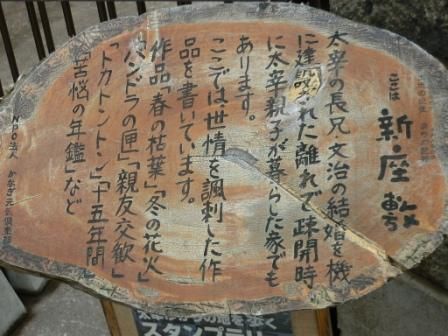 ここは
新座敷
太宰の長兄文治の結婚を機
に建設された離れで疎開時
に太宰親子が暮らした家でも
あります。
ここでは世情を諷刺した作
品を書いています。
作品「春の枯葉」「冬の花火」
「パンドラの匣」「親友交歓」
「トカトントン」「十五年間」
「苦悩の年鑑」など
NPO法人 かなぎ元気倶楽部
スタンプラ